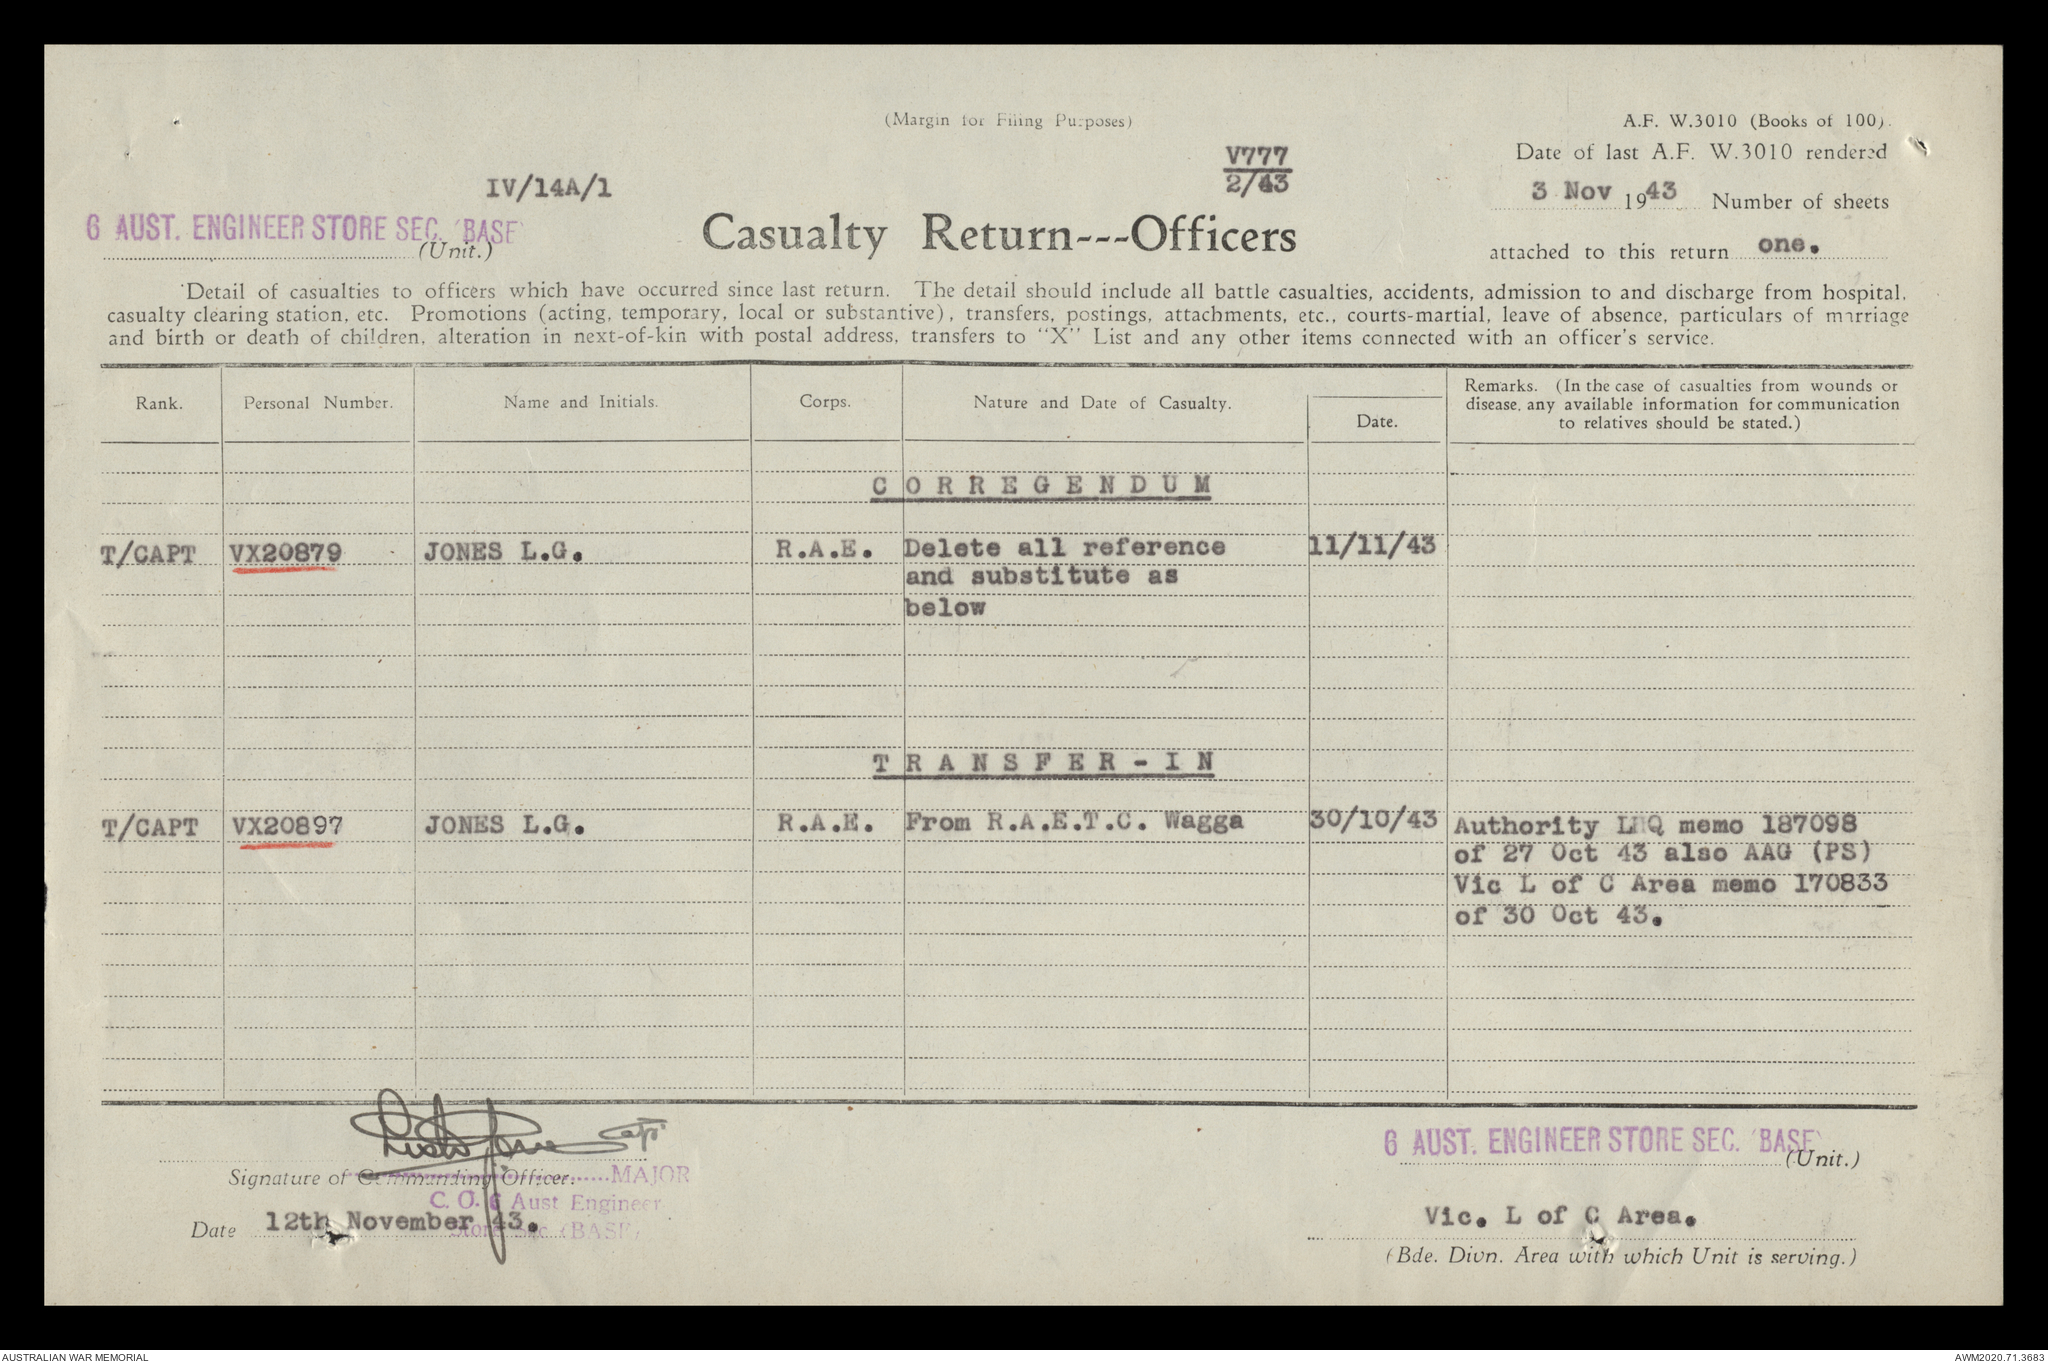 (Margin for Filing Purposes)
A.F. W.3010 (Books of 100).
Date of last A.F. W.3010 rendered
V777
2/43
IV/14A/1
3 Nov 1943 Number of sheets
6 AUST. ENGINEER STORE SEC. (BASE)
(Unit.)
Casualty Return---Officers
attached to this return one.
Detail of casualties to officers which have occurred since last return. The detail should include all battle casualties, accidents, admission to and discharge from hospital,
casualty clearing station, etc. Promotions (acting, temporary, local or substantive), transfers, postings, attachments, etc., courts-martial, leave of absence, particulars of marriage
and birth or death of children, alteration in next-of-kin with postal address, transfers to "X" List and any other items connected with an officer's service.
Rank. Personal Number. Name and Initials. Corps. Nature and Date of Casualty. Date.
Remarks. (In the case of casualties from wounds or
disease, any available information for communication
to relatives should be stated.)
CORREGENDUM
T/CAPT VX20879 JONES L.G. R.A.E. Delete all reference 11/11/43
and substitute as
below
TRANSFER-IN
T/CAPT VX20897 JONES L.G. R.A.E. From R.A.E.T.C. Wagga 30/10/43 Authority LHQ memo 187098
of 27 Oct 43 also AAG (PS)
Vic L of C Area memo 170833
of 30 Oct 43.
Capt
Signature of Commanding Officer. MAJOR
C. O. 6 Aust Engineer
Store Sec (BASE)
Date 12th November 43.
6 AUST. ENGINEER STORE SEC. (BASE)
(Unit.)
Vic. L of C Area.
(Bde. Divn. Area with which Unit is serving.)
AUSTRALIAN WAR MEMORIAL
AWM2020.71.3683